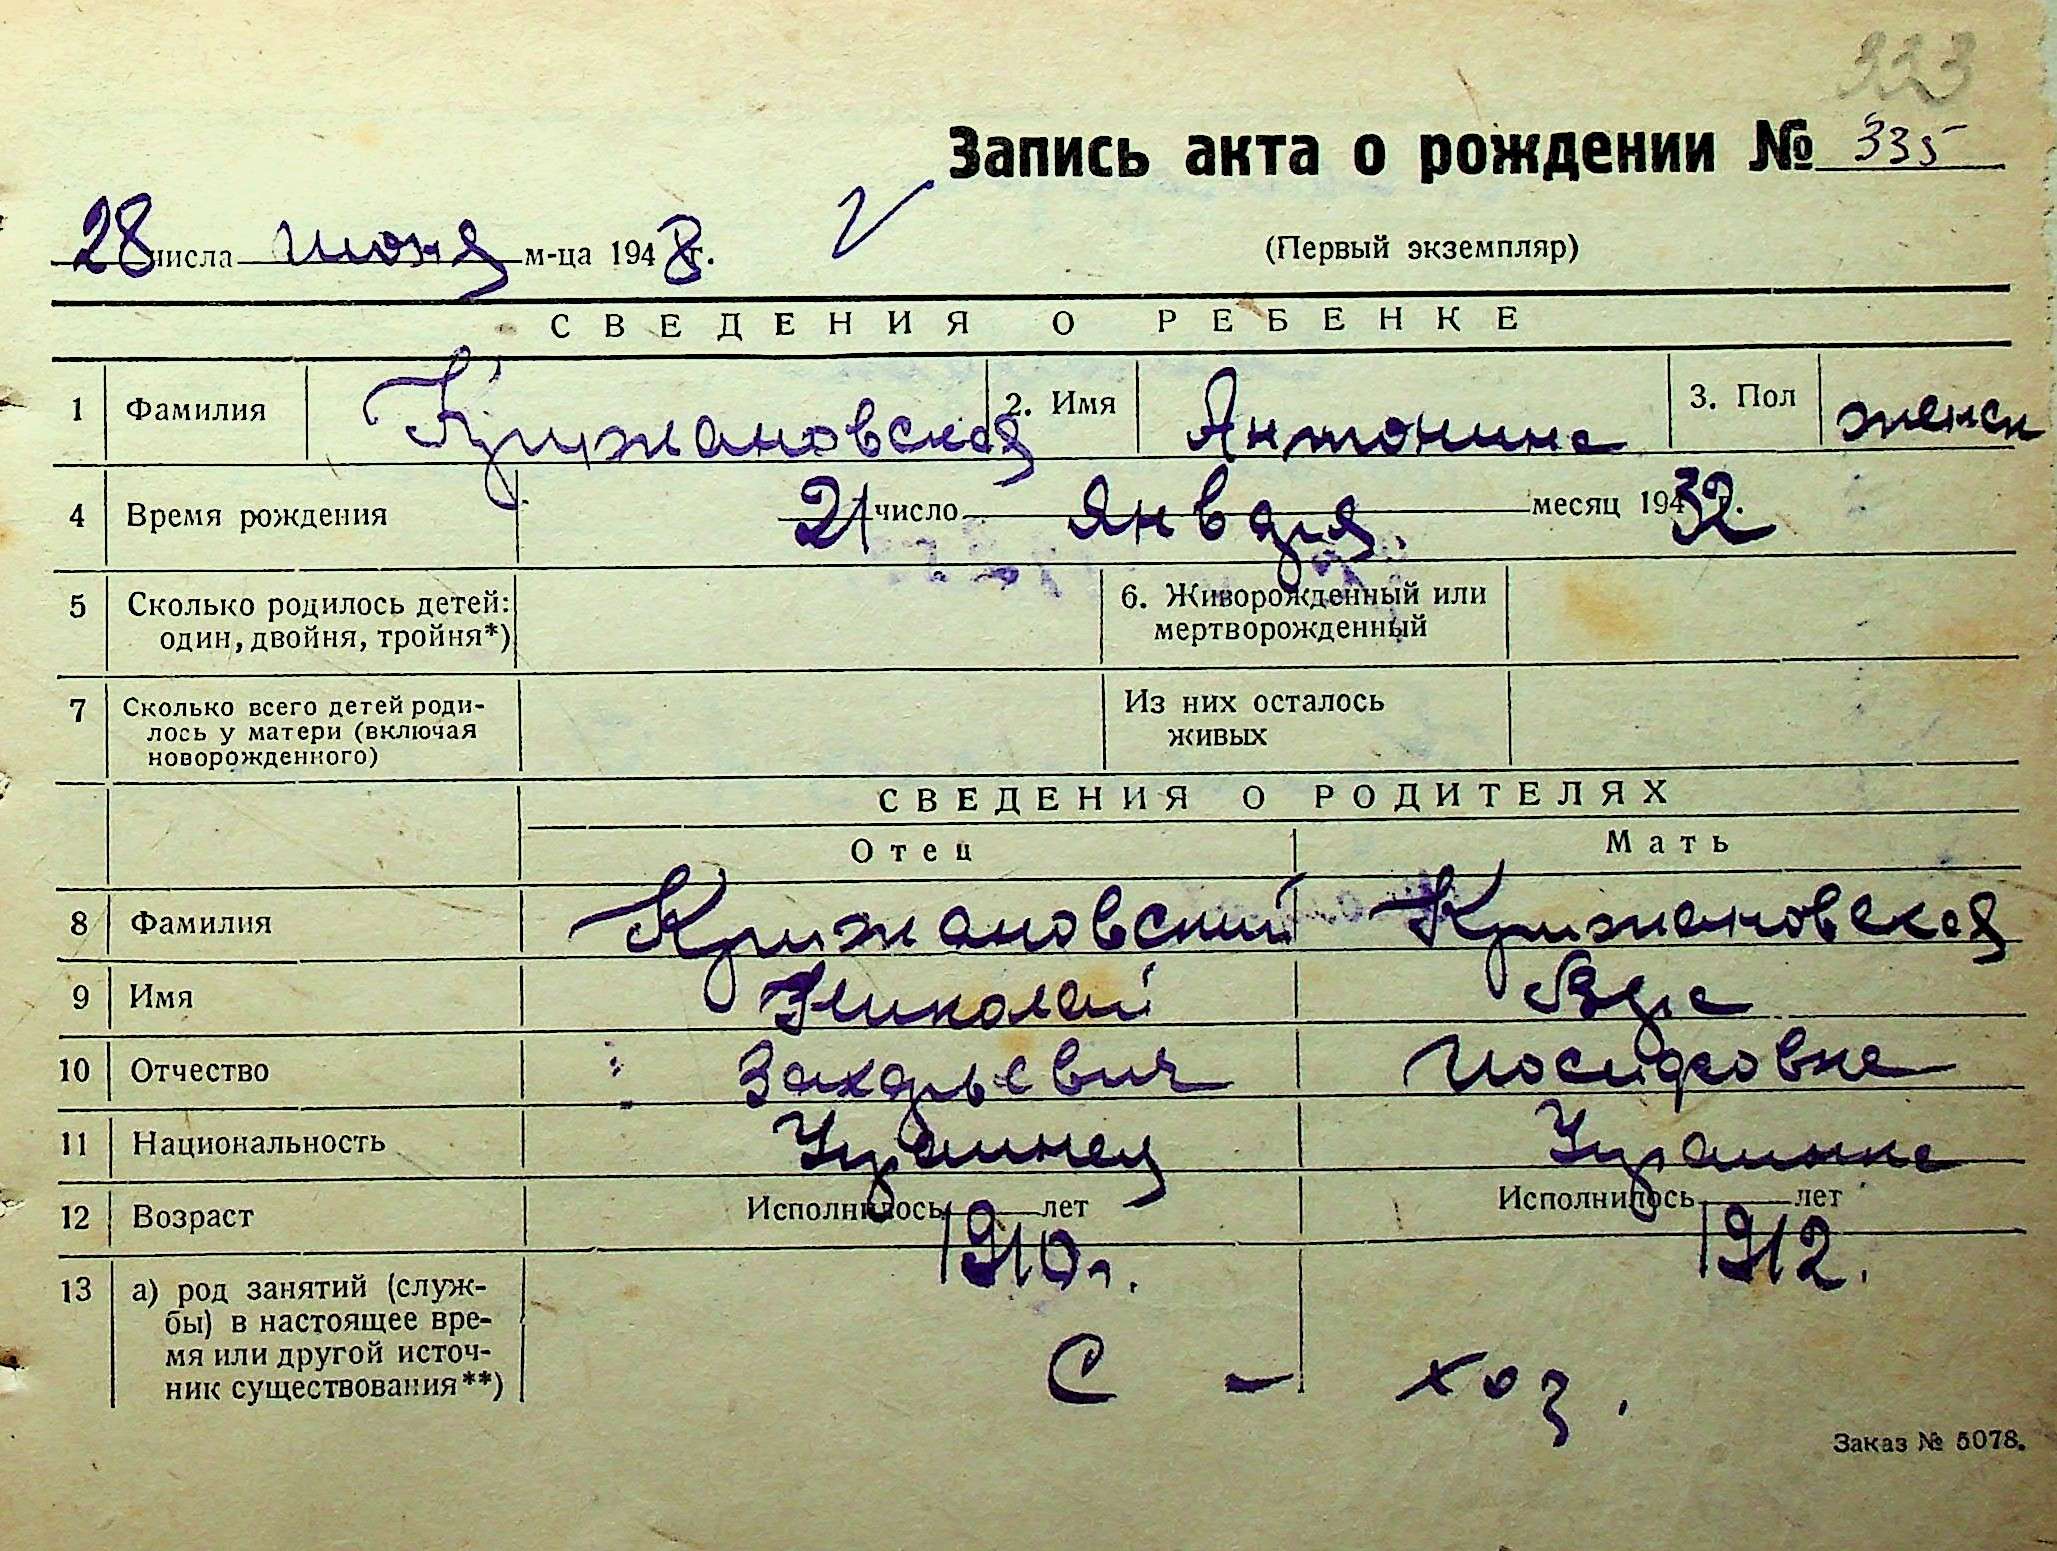 323
Запись акта о рождении № 335
28 числа июня м-ца 1948 г.
(Первый экземпляр)
СВЕДЕНИЯ О РЕБЕНКЕ
1 Фамилия Крижановская 2. Имя Антонина 3. Пол женск
4 Время рождения 21 число января месяц 19432 г.
5 Сколько родилось детей: один, двойня, тройня*) 6. Живорожденный или мертворожденный
7 Сколько всего детей роди-
лось у матери (включая
новорожденного)
Из них осталось
живых
СВЕДЕНИЯ О РОДИТЕЛЯХ
Отец Мать
8 Фамилия Крижановский Крижановская
9 Имя Николай Вера
10 Отчество Захарьевич Иосифовна
11 Национальность Украинец Украинка
12 Возраст Исполнилось лет Исполнилось лет
1910 г. 1912.
13 а) род занятий (служ-
бы) в настоящее вре-
мя или другой источ-
ник существования**)
С - хоз.
Заказ № 5078.